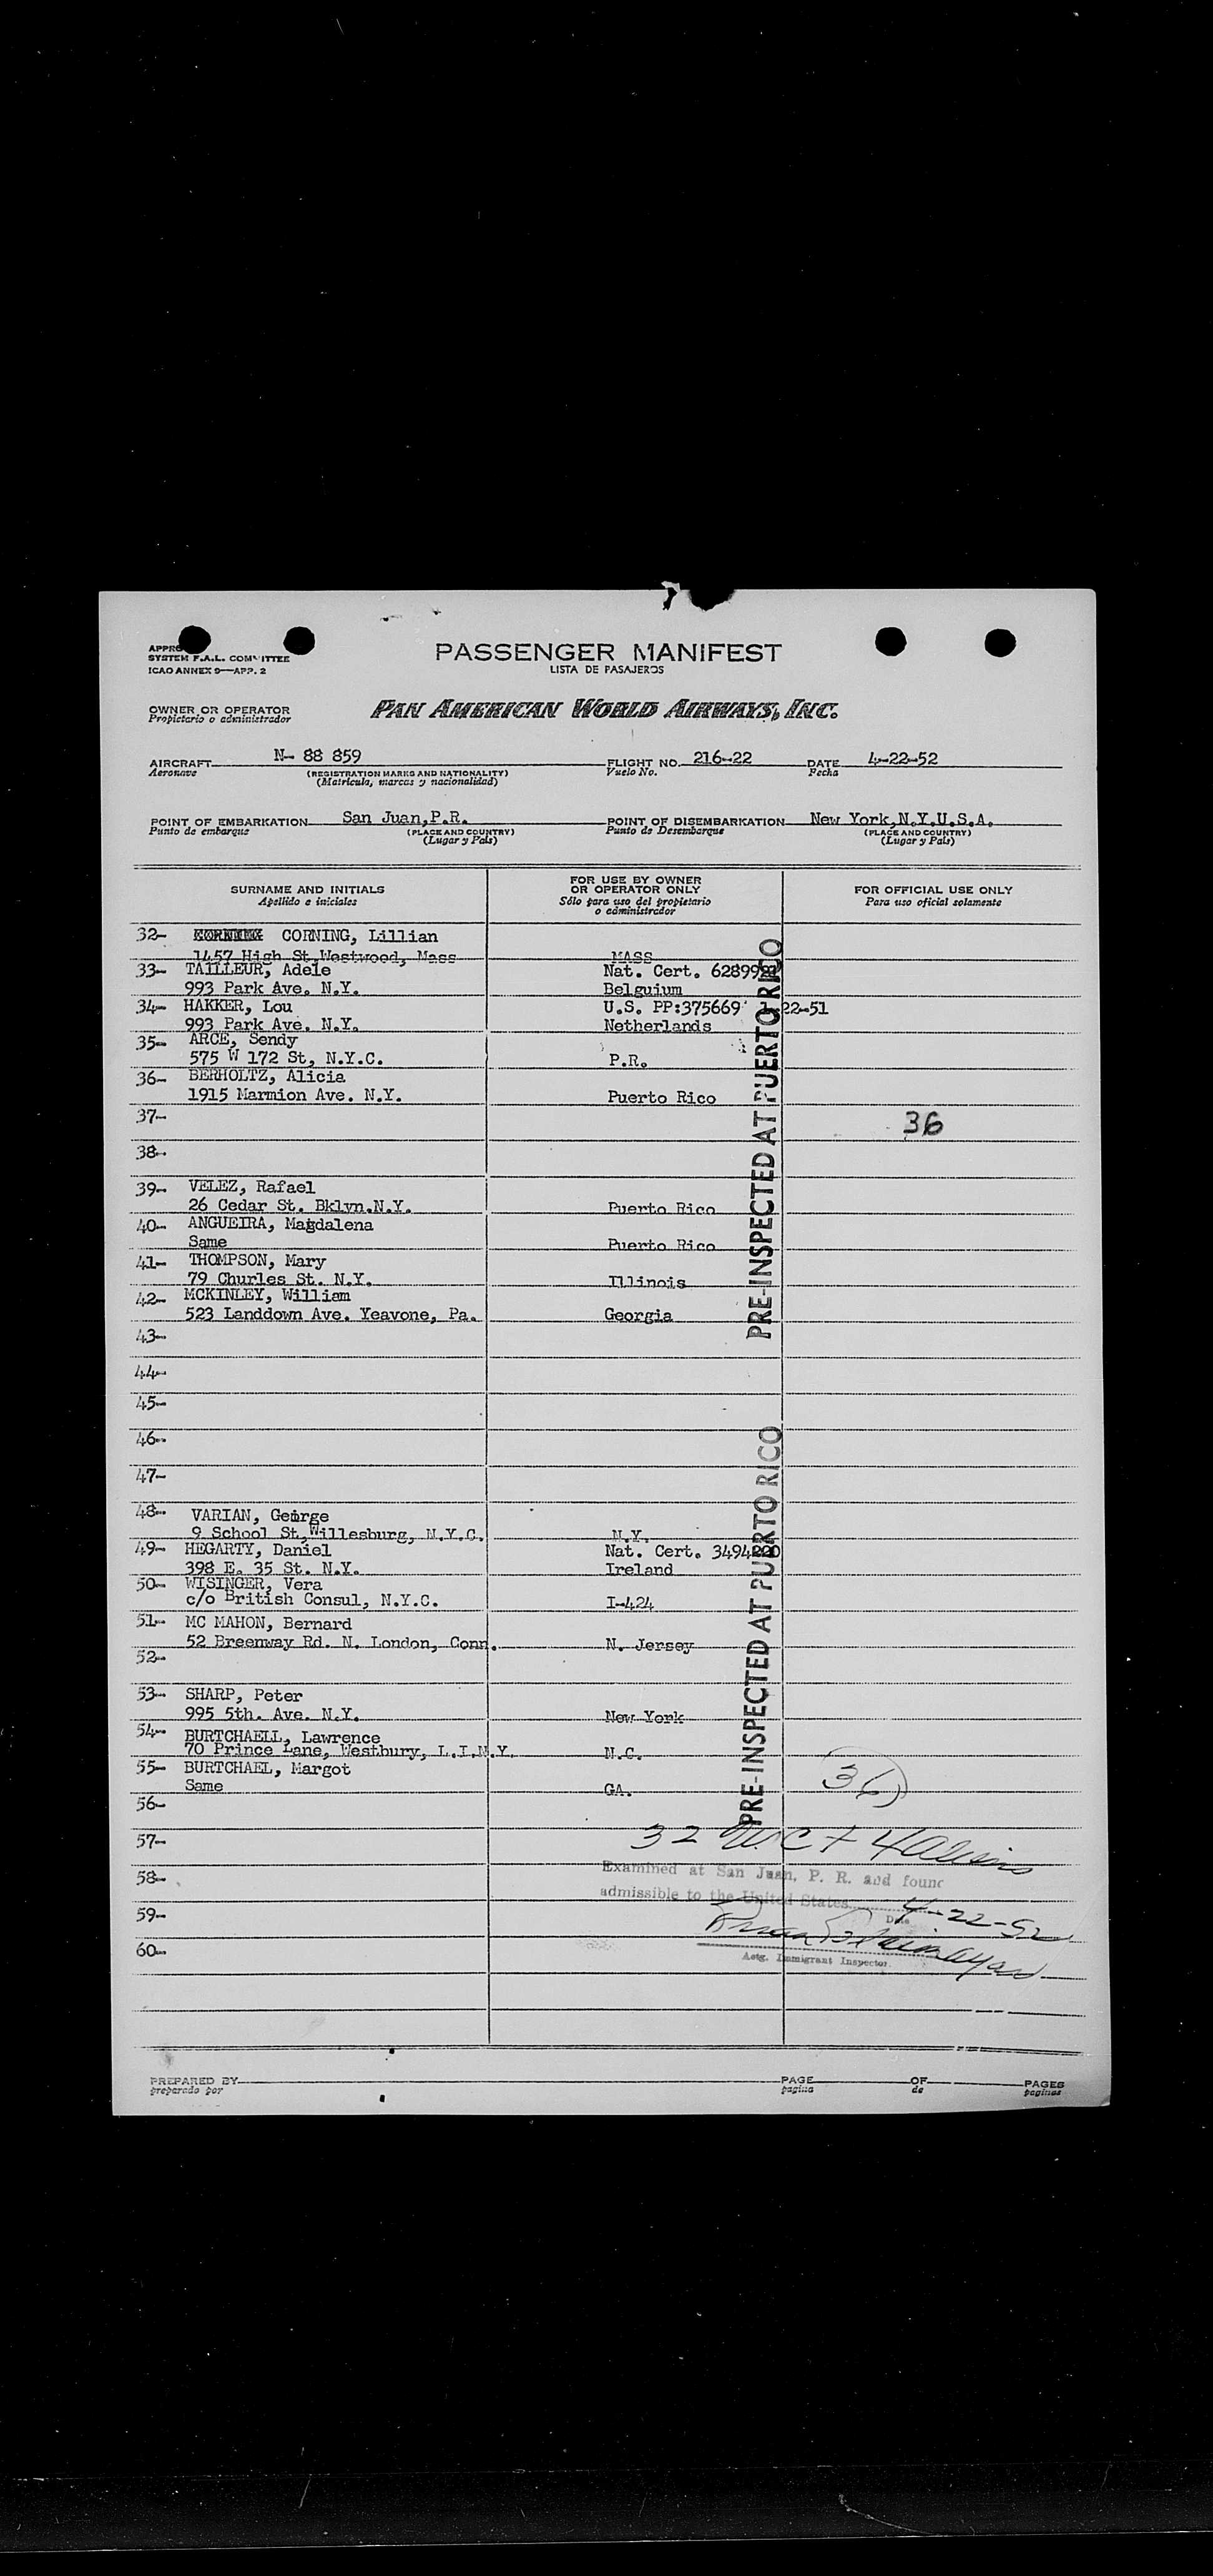 SYSTEM F.A.L. COMMITTEE
ICAO ANNEX 9—APP. 2
PASSENGER MANIFEST
LISTA DE PASAJEROS
OWNER OR OPERATOR
Propietario o administrador
PAN AMERICAN WORLD AIRWAYS, INC.
AIRCRAFT N- 88 859 FLIGHT NO. 216-22 DATE 4-22-52
Aeronave (REGISTRATION MARKS AND NATIONALITY) Vuelo No. Fecha
(Matricula, marcas y nacionalidad)
POINT OF EMBARKATION San Juan,P.R. POINT OF DISEMBARKATION New York,N.Y.U.S.A.
Punto de embarque (PLACE AND COUNTRY) Punto de Desembarque (PLACE AND COUNTRY)
(Lugar y Pais) (Lugar y Pais)
SURNAME AND INITIALS
Apellido e iniciales
FOR USE BY OWNER
OR OPERATOR ONLY
Sólo para uso del propietario
o administrador
FOR OFFICIAL USE ONLY
Para uso oficial solamente
32- CORNING, Lillian
1457 High St.Westwood, Mass MASS
33- TAILLEUR, Adele Nat. Cert.
993 Park Ave. N.Y. Belguium
34- HAKKER, Lou U.S. PP:375669 22-51
993 Park Ave. N.Y. Netherlands
35- ARCE, Sendy
575 W 172 St, N.Y.C. P.R.
36- BERHOLTZ, Alicia
1915 Marmion Ave. N.Y. Puerto Rico
37- 36
38-
39- VELEZ, Rafael
26 Cedar St. Bklyn.N.Y. Puerto Rico
40- ANGUEIRA, Magdalena
Same Puerto Rico
41- THOMPSON, Mary
79 Churles St. N.Y. Illinois
42- MCKINLEY, William
523 Landdown Ave. Yeavone, Pa. Georgia
PRE-INSPECTED AT PUERTO RICO
43-
44-
45-
46-
47-
48- VARIAN, George
9 School St,Willesburg, N.Y.C. N.Y.
49- HEGARTY, Daniel Nat. Cert.
398 E. 35 St. N.Y. Ireland
50- WISINGER, Vera
c/o British Consul, N.Y.C. I-424
51- MC MAHON, Bernard
52 Breenway Rd. N. London, Conn. N. Jersey
52-
53- SHARP, Peter
995 5th. Ave. N.Y. New York
54- BURTCHAELL, Lawrence
70 Prince Lane, Westbury, L.I.N.Y. N.C.
55- BURTCHAEL, Margot
Same GA.
PRE-INSPECTED AT PUERTO RICO
36
56-
57- 32 + 4 Aliens
58- Examined at San Juan, P. R. and found
admissible to the United States 4-22-52
59- Date
60- Actg. Immigrant Inspector.
PREPARED BY PAGE OF PAGES
preparado por pagina de paginas